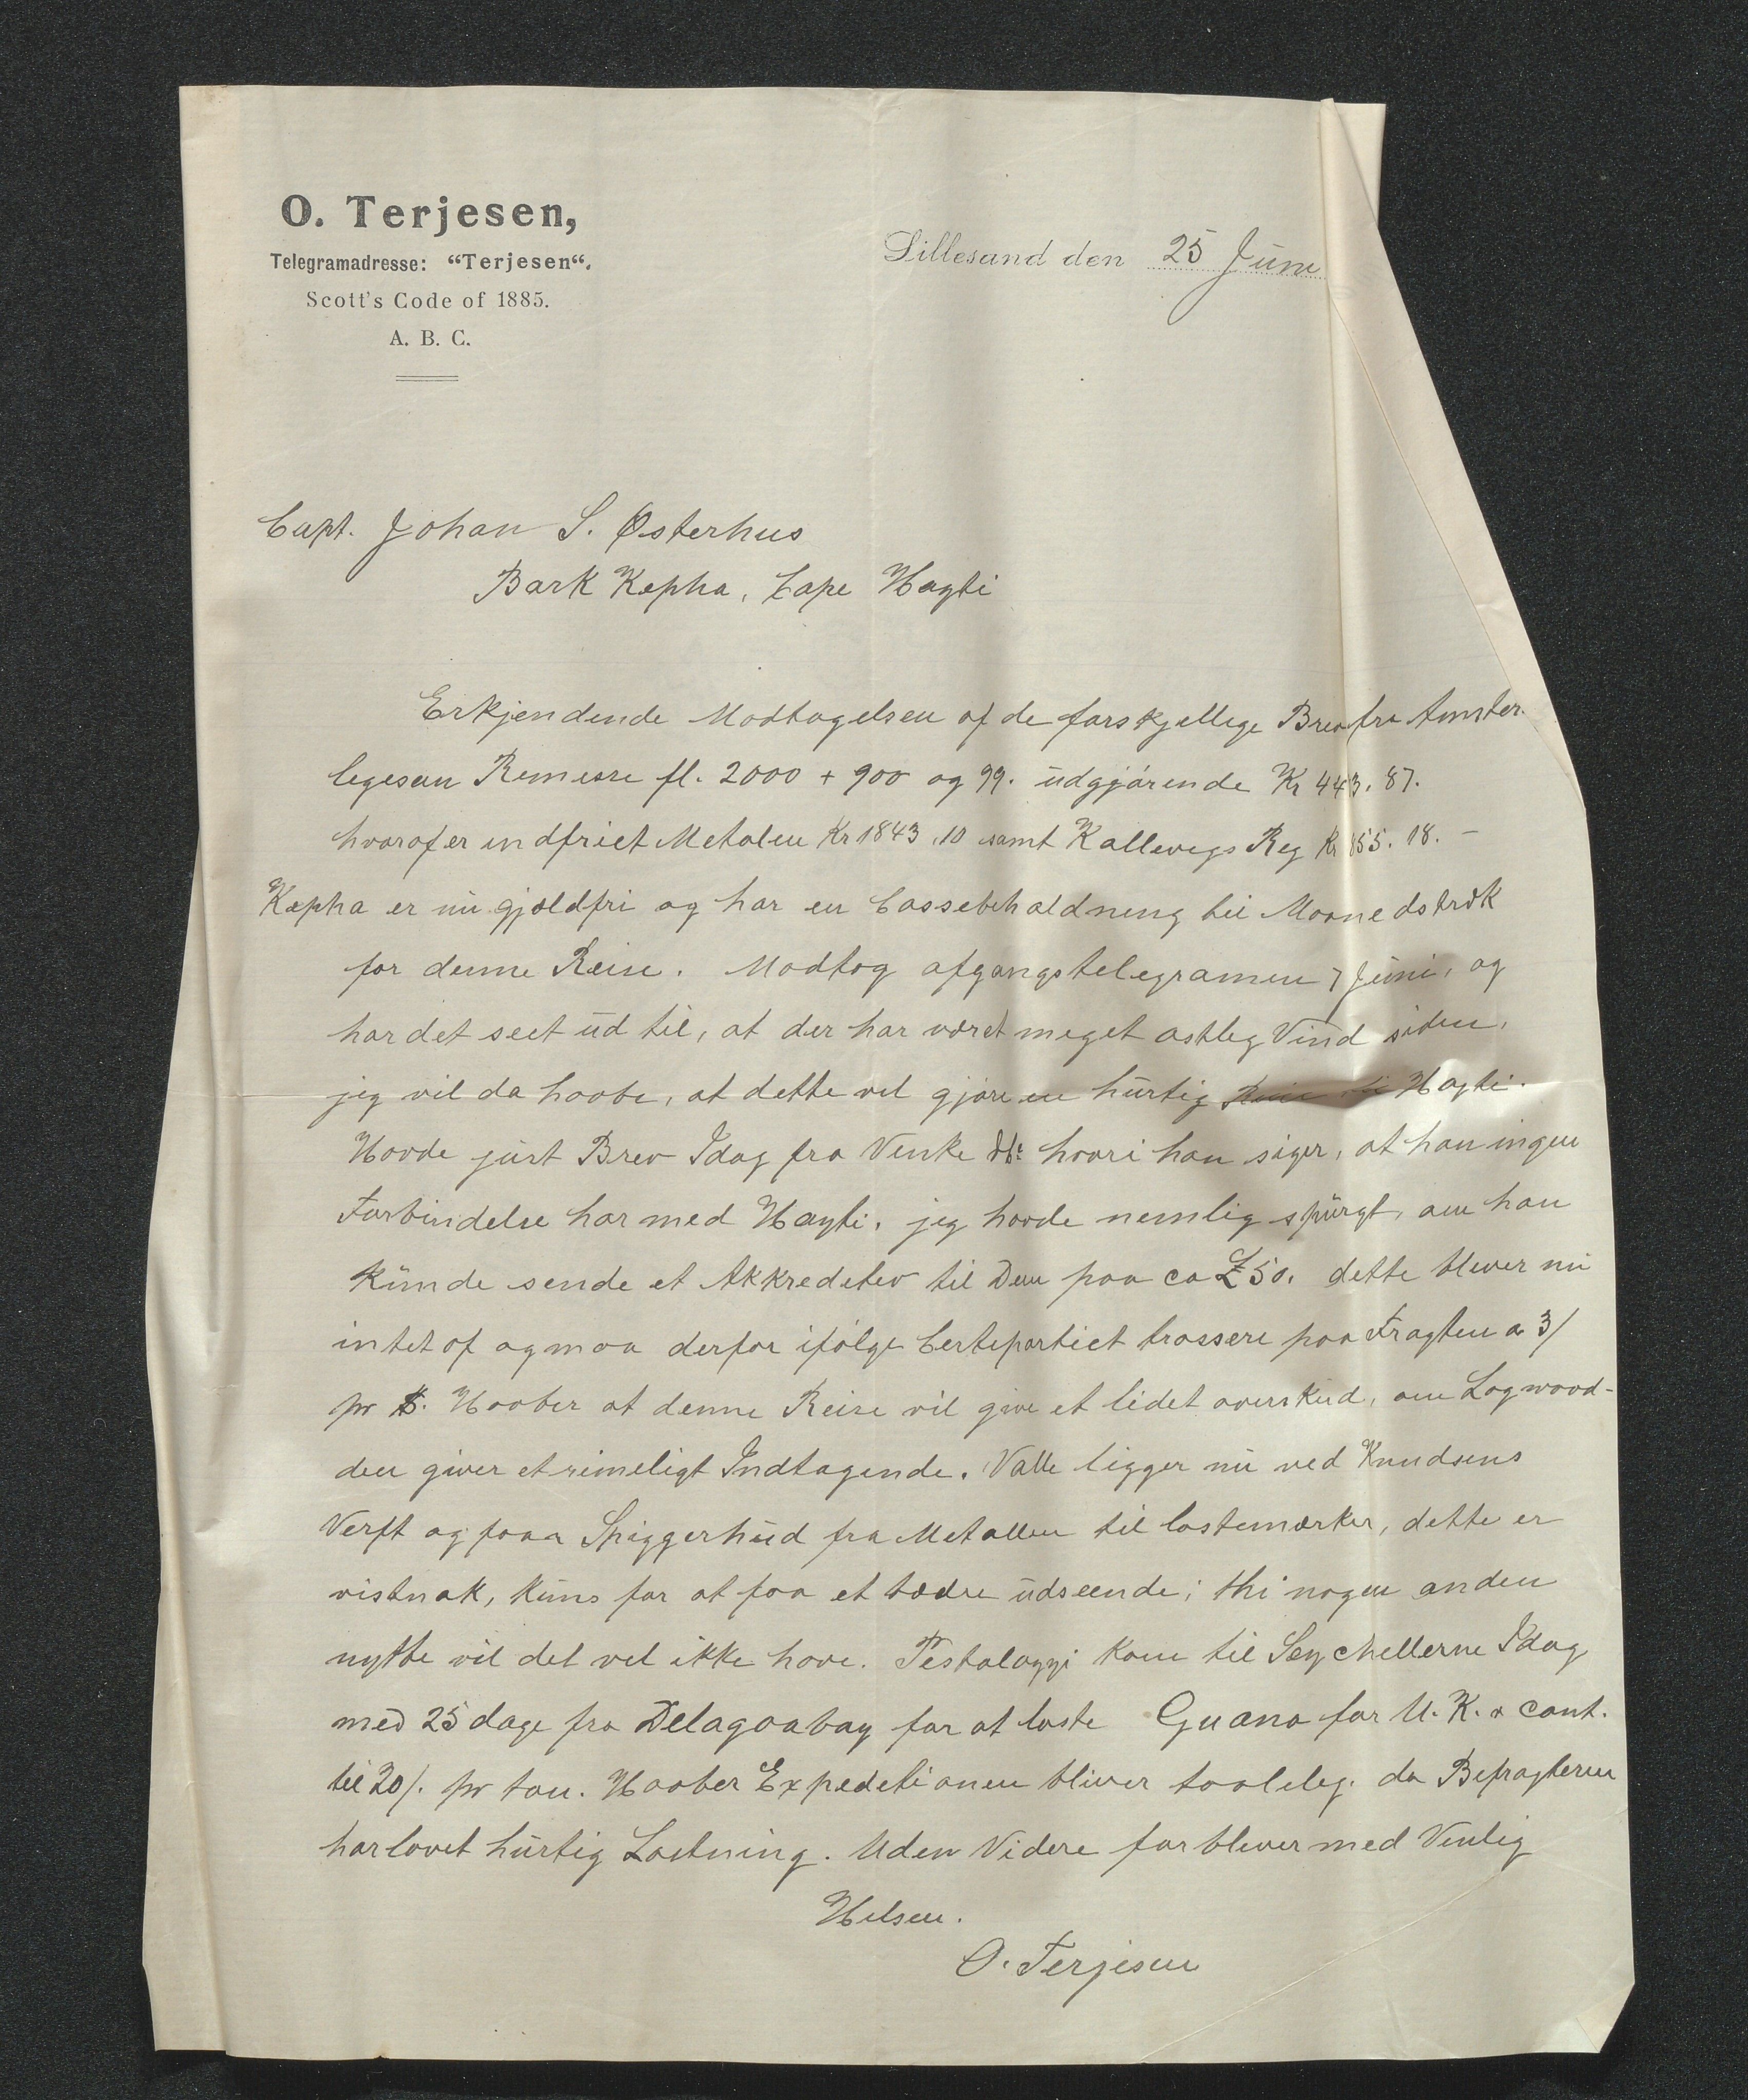 O. Terjesen,
Telegramadresse: “Terjesen“.
Scott's Code of 1885.
A. B. C.
Lillesand den 25 Juni
Capt. Johan S. Østerhus
Bark Kepha, Cape Hayti
Erkjendende Modtagelsen af de forskjellige Brev fra Amster.
ligesaa Remisse fl. 2000 + 900 og 99. udgjørende Kr 443. 87.
hvoraf er indfriet Metalen Kr 1843.10 samt Kallevigs Reg Kr 155. 18. –
Kepha er nu gjældfri og har en Cassebeholdning til Maanedstræk
for denne Reise. Modtog afgangstelegramen 7 Juni, og
har det seet ud til, at der har været meget østlig Vind siden,
jeg vil da haabe, at dette vil gjøre en hurtig Reise til Hayti.
Havde just Brev Idag fra Vinke hvori han siger, at han ingen
Forbindelse har med Hayti. jeg havde nemlig spurgt, om han
kunde sende et Akkreditiv til Dem paa ca £50. dette bliver nu
intet af og maa derfor ifølge Certepartiet trassere paa Fragten a 3/
pr Haaber at denne Reise vil give et lidet overskud, om Logwood-
den giver et rimeligt Indtagende. Valle ligger nu ved Knudsens
Verft og faaer Spiggerhud fra Metallen til lastemærker, dette er
vistnok, kuns for at faa et bedre udseende; thi nogen anden
nytte vil det vel ikke have. Pestalozzi kom til Seychellerne Idag
med 25 dage fra Delagoabay for at laste Guano for U. K. & Cont.
til 20/. pr ton. Haaber Expeditionen bliver taalelig. da Befragteren
har lovet hurtig Lastning. Uden Videre forbliver med Venlig
Hilsen.
O. Terjesen